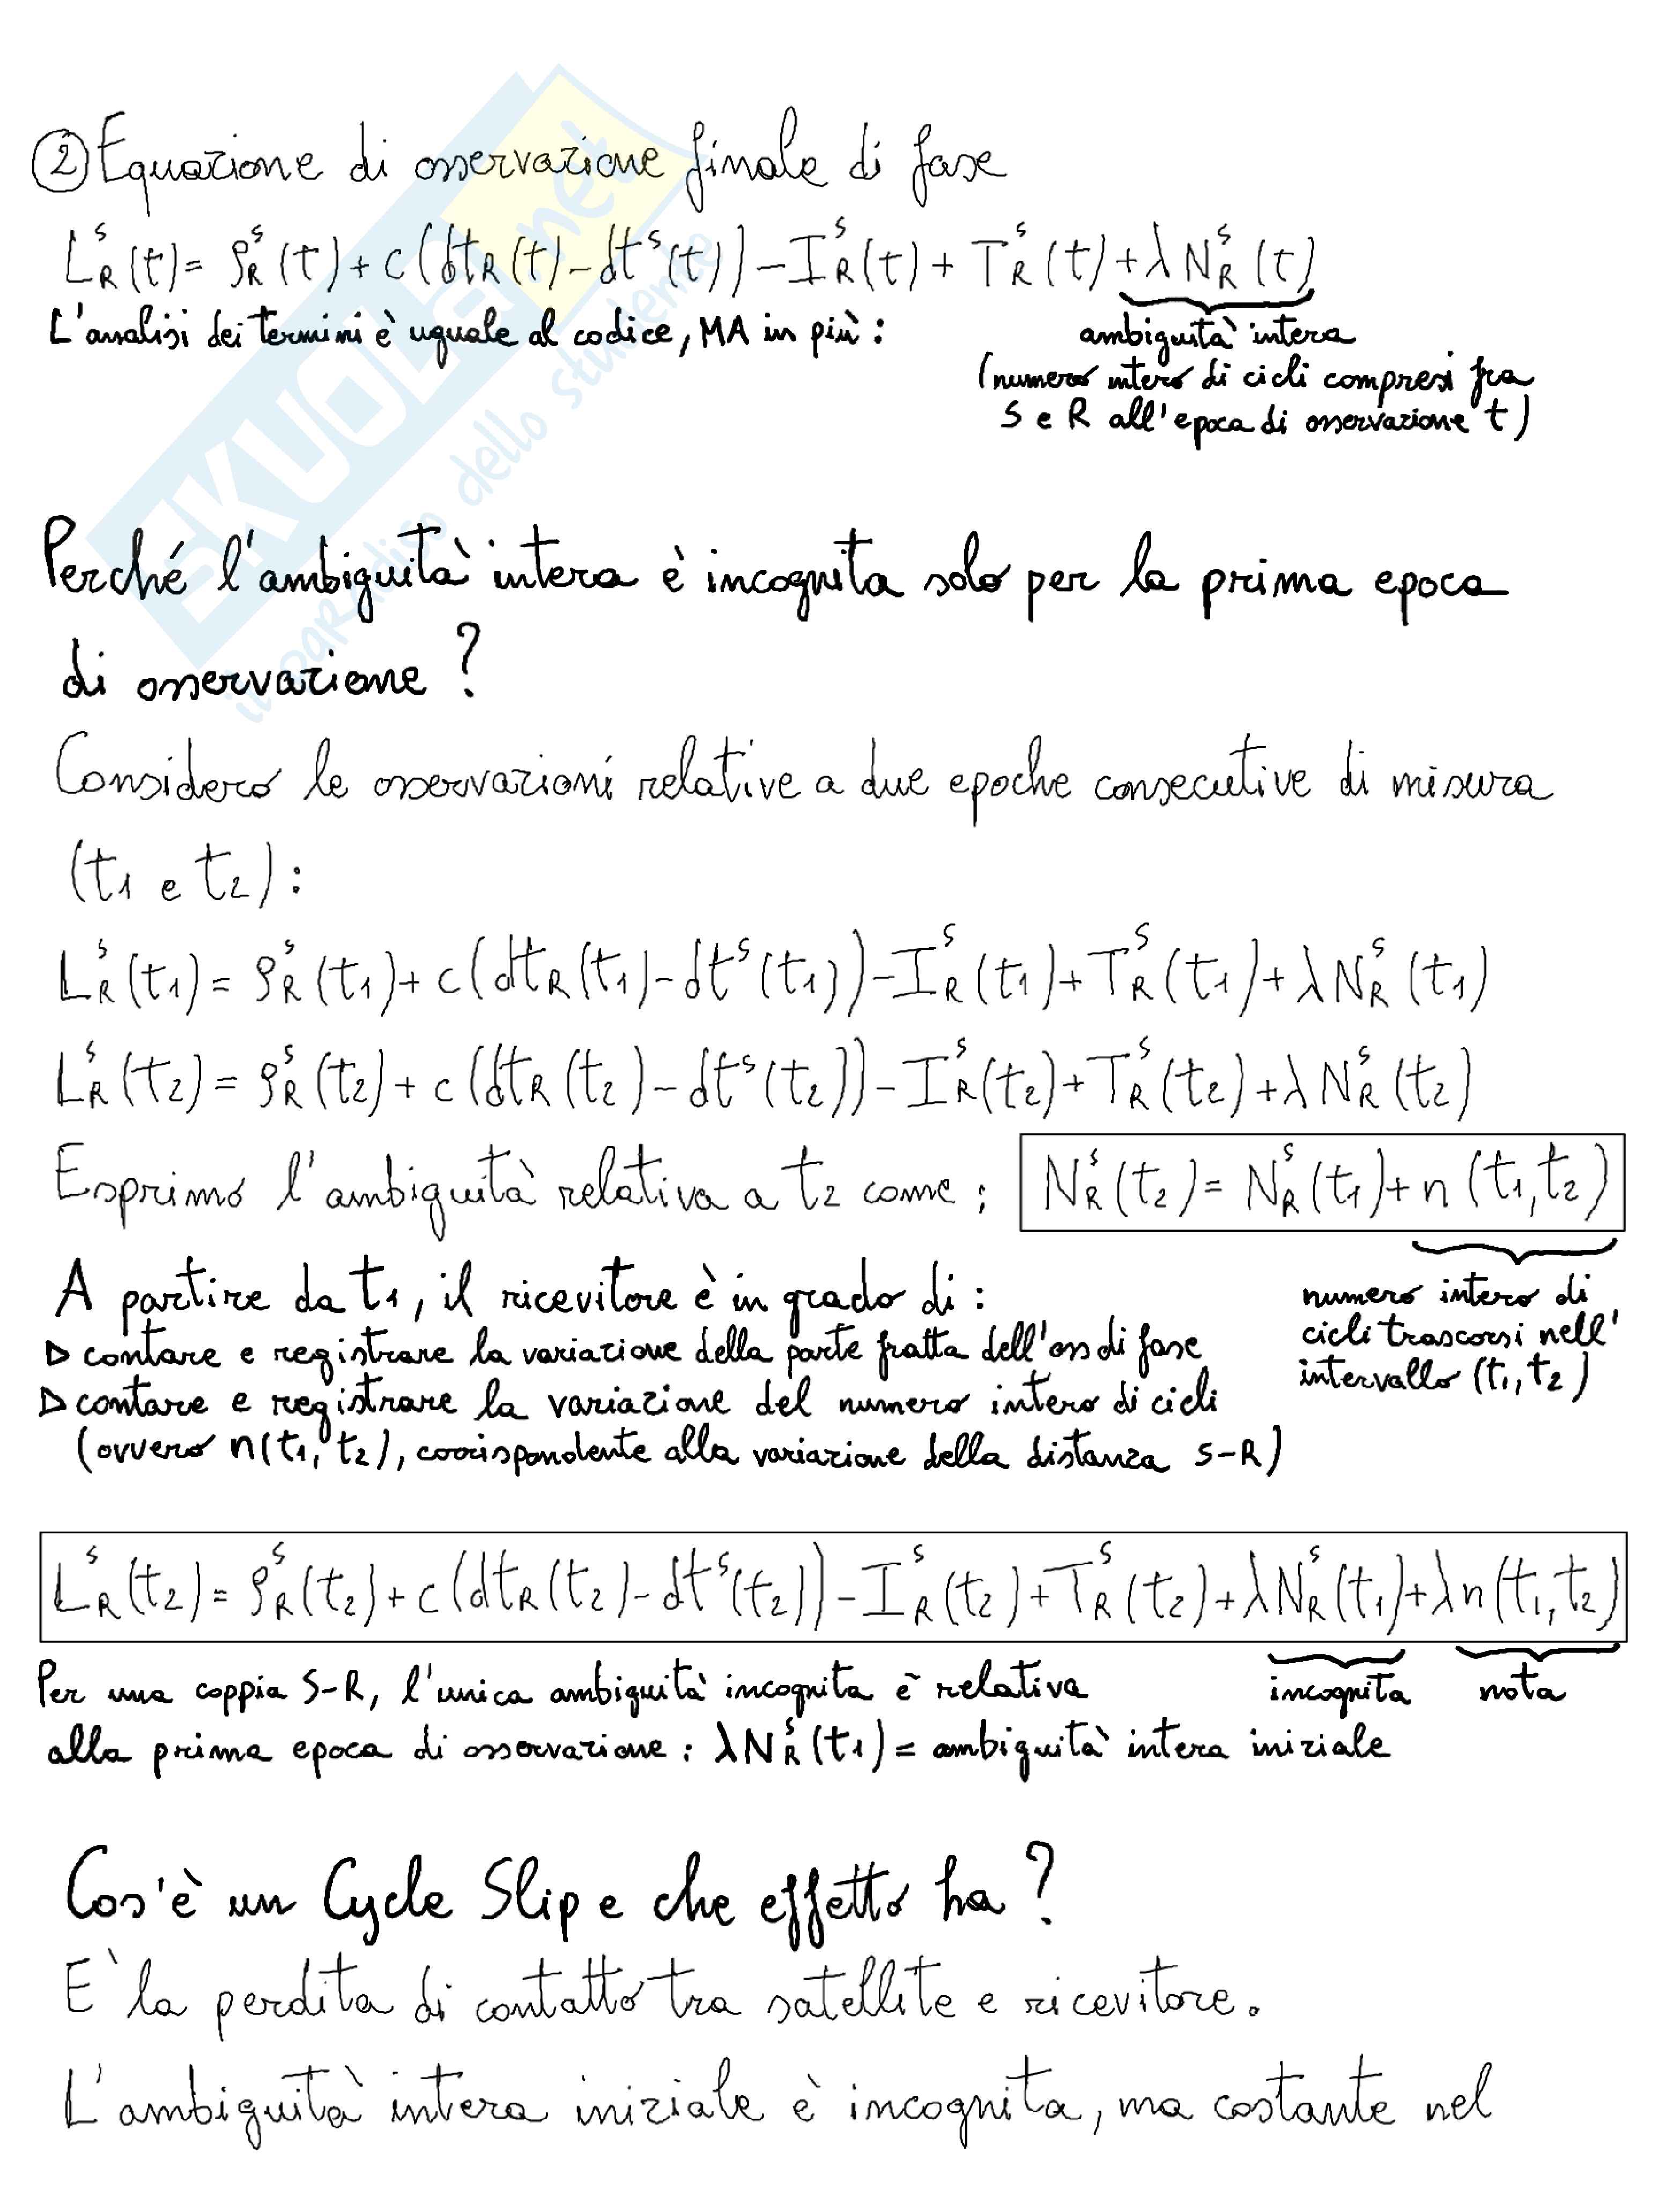 ② Equazione di osservazione finale di fase
L_R^s(t) = ρ_R^s(t) + c(dt_R(t) - dt^s(t)) - I_R^s(t) + T_R^s(t) + λN_R^s(t)
L'analisi dei termini è uguale al codice, MA in più:
ambiguità intera
(numero intero di cicli compresi fra
S e R all'epoca di osservazione t)
Perché l'ambiguità intera è incognita solo per la prima epoca
di osservazione?
Considero le osservazioni relative a due epoche consecutive di misura
(t1 e t2):
L_R^s(t1) = ρ_R^s(t1) + c(dt_R(t1) - dt^s(t1)) - I_R^s(t1) + T_R^s(t1) + λN_R^s(t1)
L_R^s(t2) = ρ_R^s(t2) + c(dt_R(t2) - dt^s(t2)) - I_R^s(t2) + T_R^s(t2) + λN_R^s(t2)
Esprimo l'ambiguità relativa a t2 come: N_R^s(t2) = N_R^s(t1) + n(t1,t2)
numero intero di
cicli trascorsi nell'
intervallo (t1,t2)
A partire da t1, il ricevitore è in grado di:
▷ contare e registrare la variazione della parte fratta dell'oss di fase
▷ contare e registrare la variazione del numero intero di cicli
(ovvero n(t1,t2), corrispondente alla variazione della distanza S-R)
L_R^s(t2) = ρ_R^s(t2) + c(dt_R(t2) - dt^s(t2)) - I_R^s(t2) + T_R^s(t2) + λN_R^s(t1) + λn(t1,t2)
incognita nota
Per una coppia S-R, l'unica ambiguità incognita è relativa
alla prima epoca di osservazione: λN_R^s(t1) = ambiguità intera iniziale
Cos'è un Cycle Slip e che effetto ha?
E' la perdita di contatto tra satellite e ricevitore.
L'ambiguità intera iniziale è incognita, ma costante nel
SKUOLA.net
il paradiso dello studente